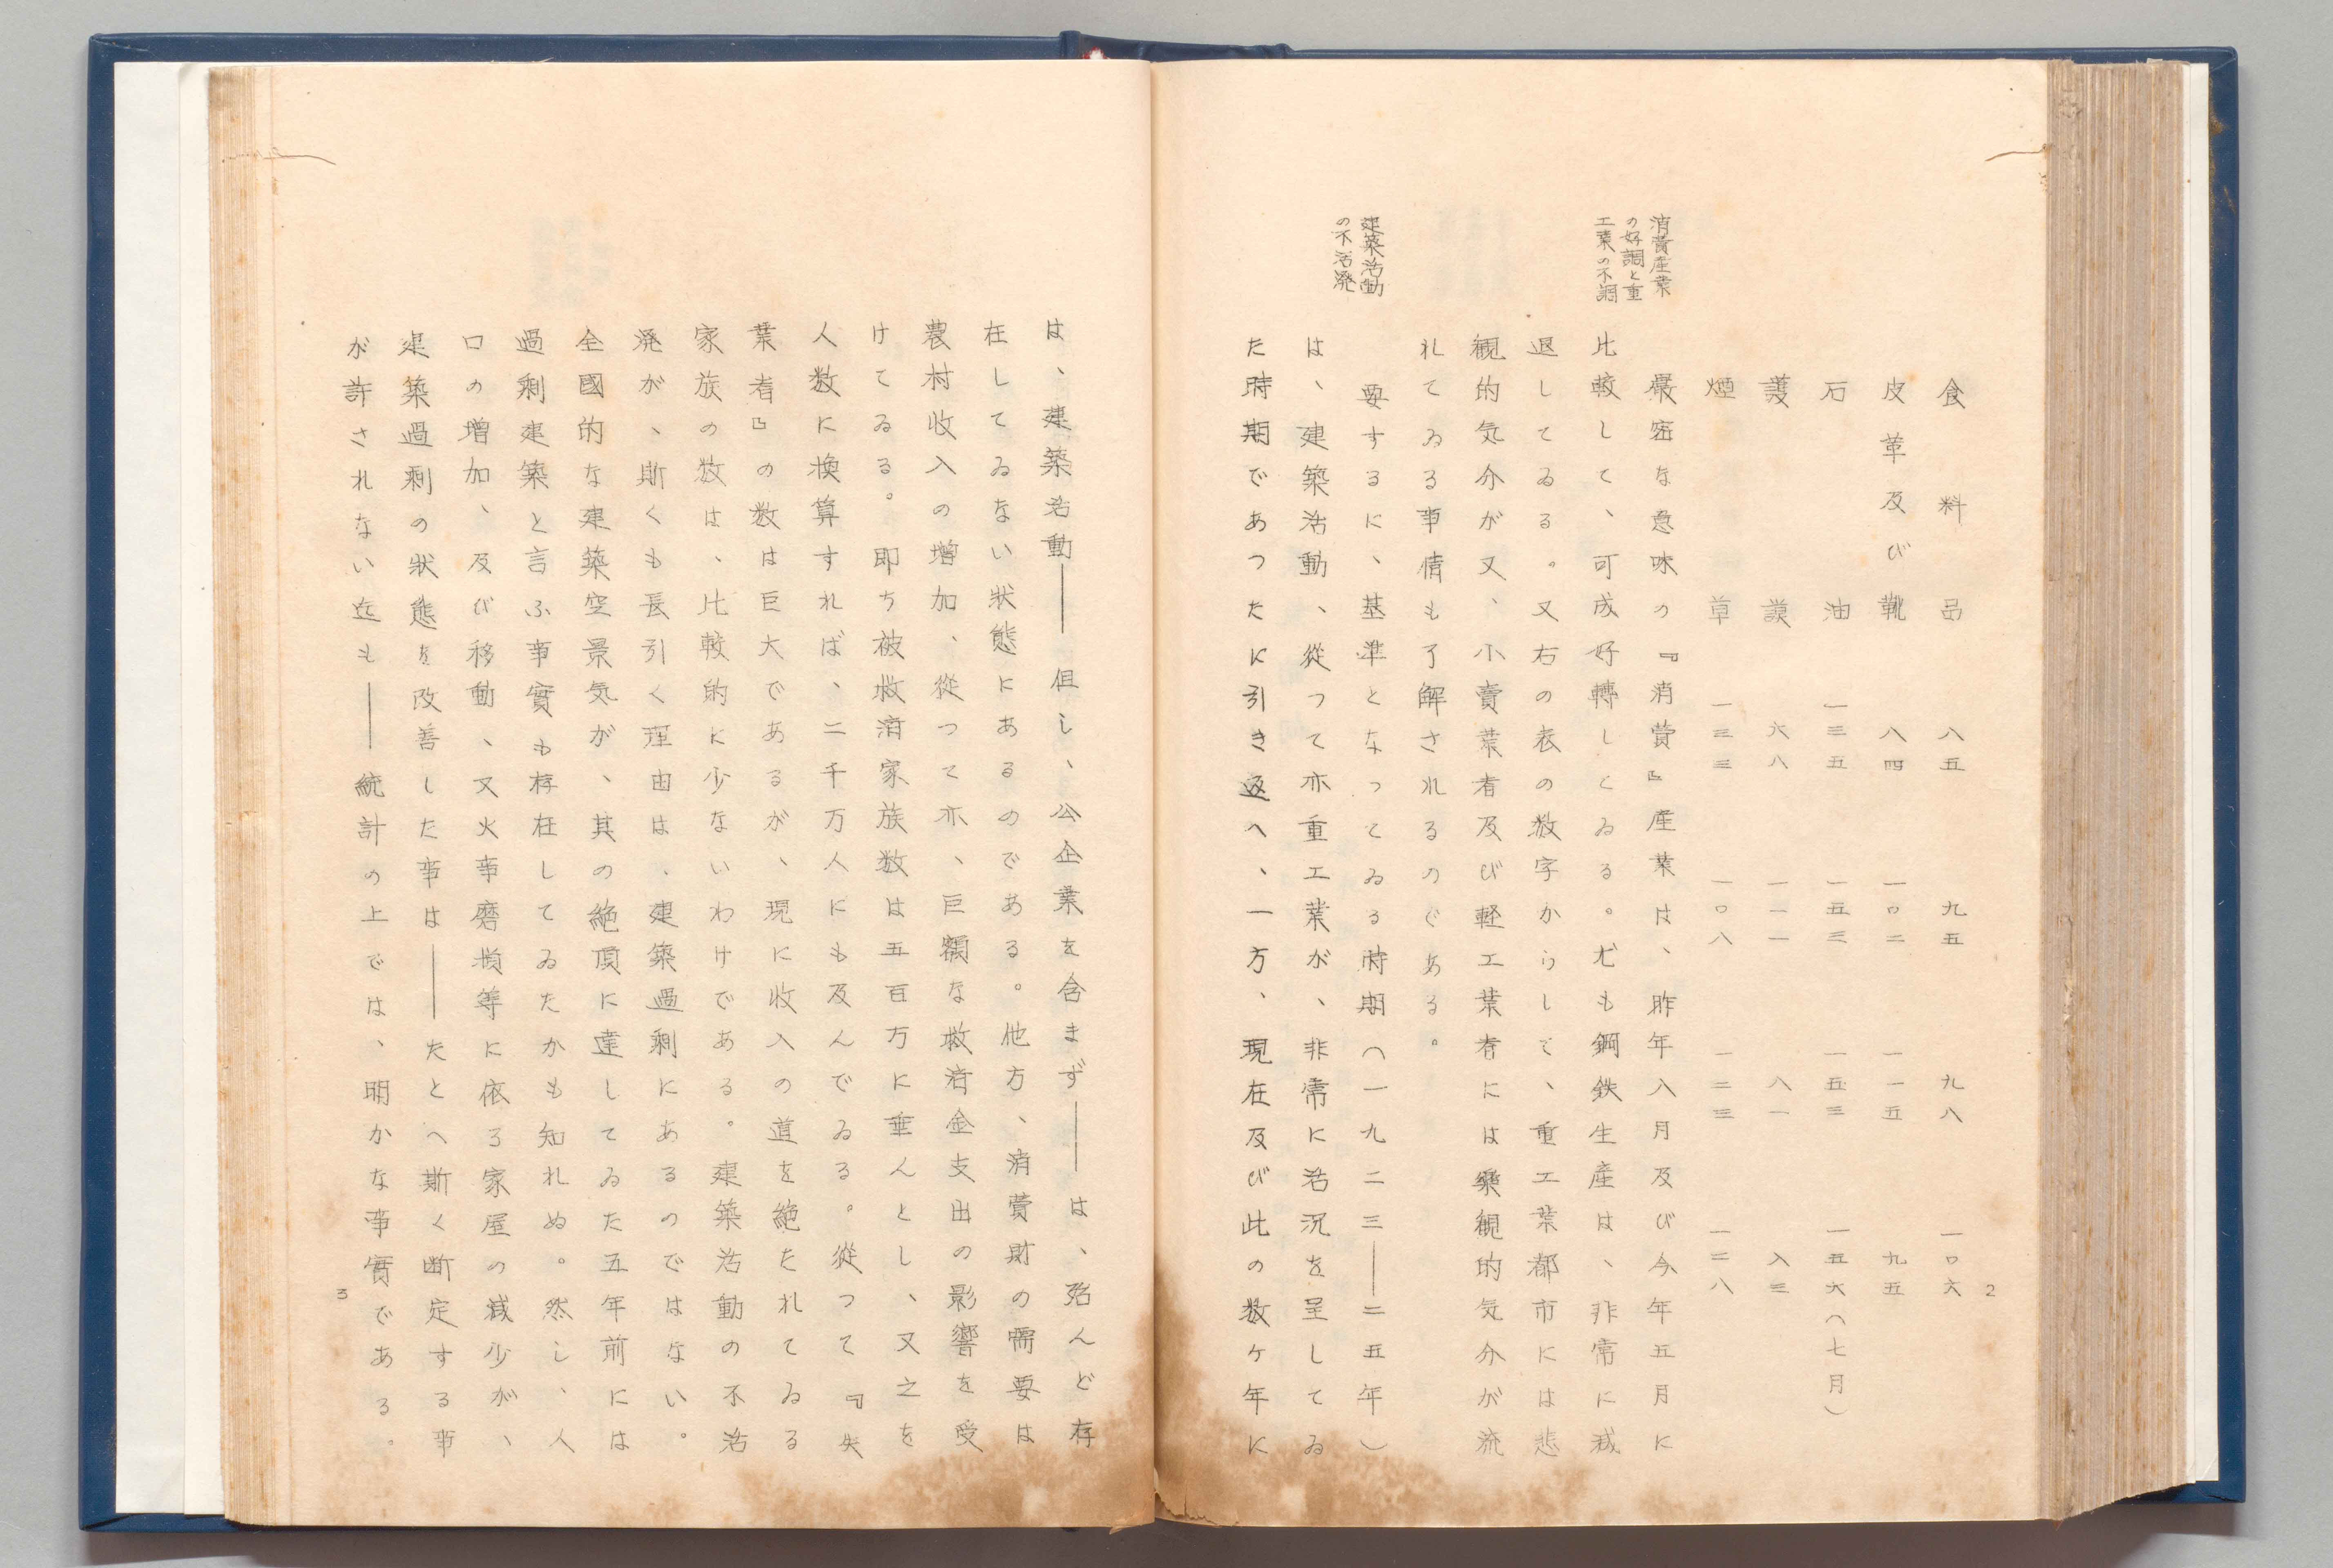 2
食料品　八五　九五　九八　一〇六
皮革及び靴　八四　一〇二　一一五　九五
石油　一三五　一五三　一五三　一五六(七月)
護謨　六八　一一一　八一　八三
煙草　一三三　一〇八　一二三　一二八
消費産業
の好調と重
工業の不調
厳密な意味の『消費』産業は、昨年八月及び今年五月に
比較して、可成好轉しくゐる。尤も鋼鉄生産は、非常に減
退してゐる。又右の表の数字からして、重工業都市には悲
観的気分が又、小賣業者及び軽工業者には樂観的気分が流
れてゐる事情も了解されるのである。
建築活動
の不活溌
要するに、基準となってゐる時期(一九二三――二五年)
は、建築活動、從って亦重工業が、非常に活況を呈してゐ
た時期であつたに引き返へ、一方、現在及び此の数ヶ年に
は、建築活動――但し、公企業を含まず――は、殆んど存
在してゐない狀態にあるのである。他方、消費財の需要は
農村收入の増加、從って亦、巨額な救済金支出の影響を受
けてゐる。即ち被救済家族数は五百万に垂んとし、又之を
人数に換算すれば、二千万人にも及んでゐる。從って『失
業者』の数は巨大であるが、現に收入の道を絶たれてゐる
家族の数は、比較的に少ないわけである。建築活動の不活
溌が、斯くも長引く理由は、建築過剰にあるのではない。
全國的な建築空景気が、其の絶頂に達してゐた五年前には
過剰建築と言ふ事實も存在してゐたかも知れぬ。然し、人
口の増加、及び移動、又火事磨損等に依る家屋の減少が、
建築過剰の狀態を改善した事は――たとへ斯く断定する事
が許されない迄も――統計の上では、明かな事實である。
3